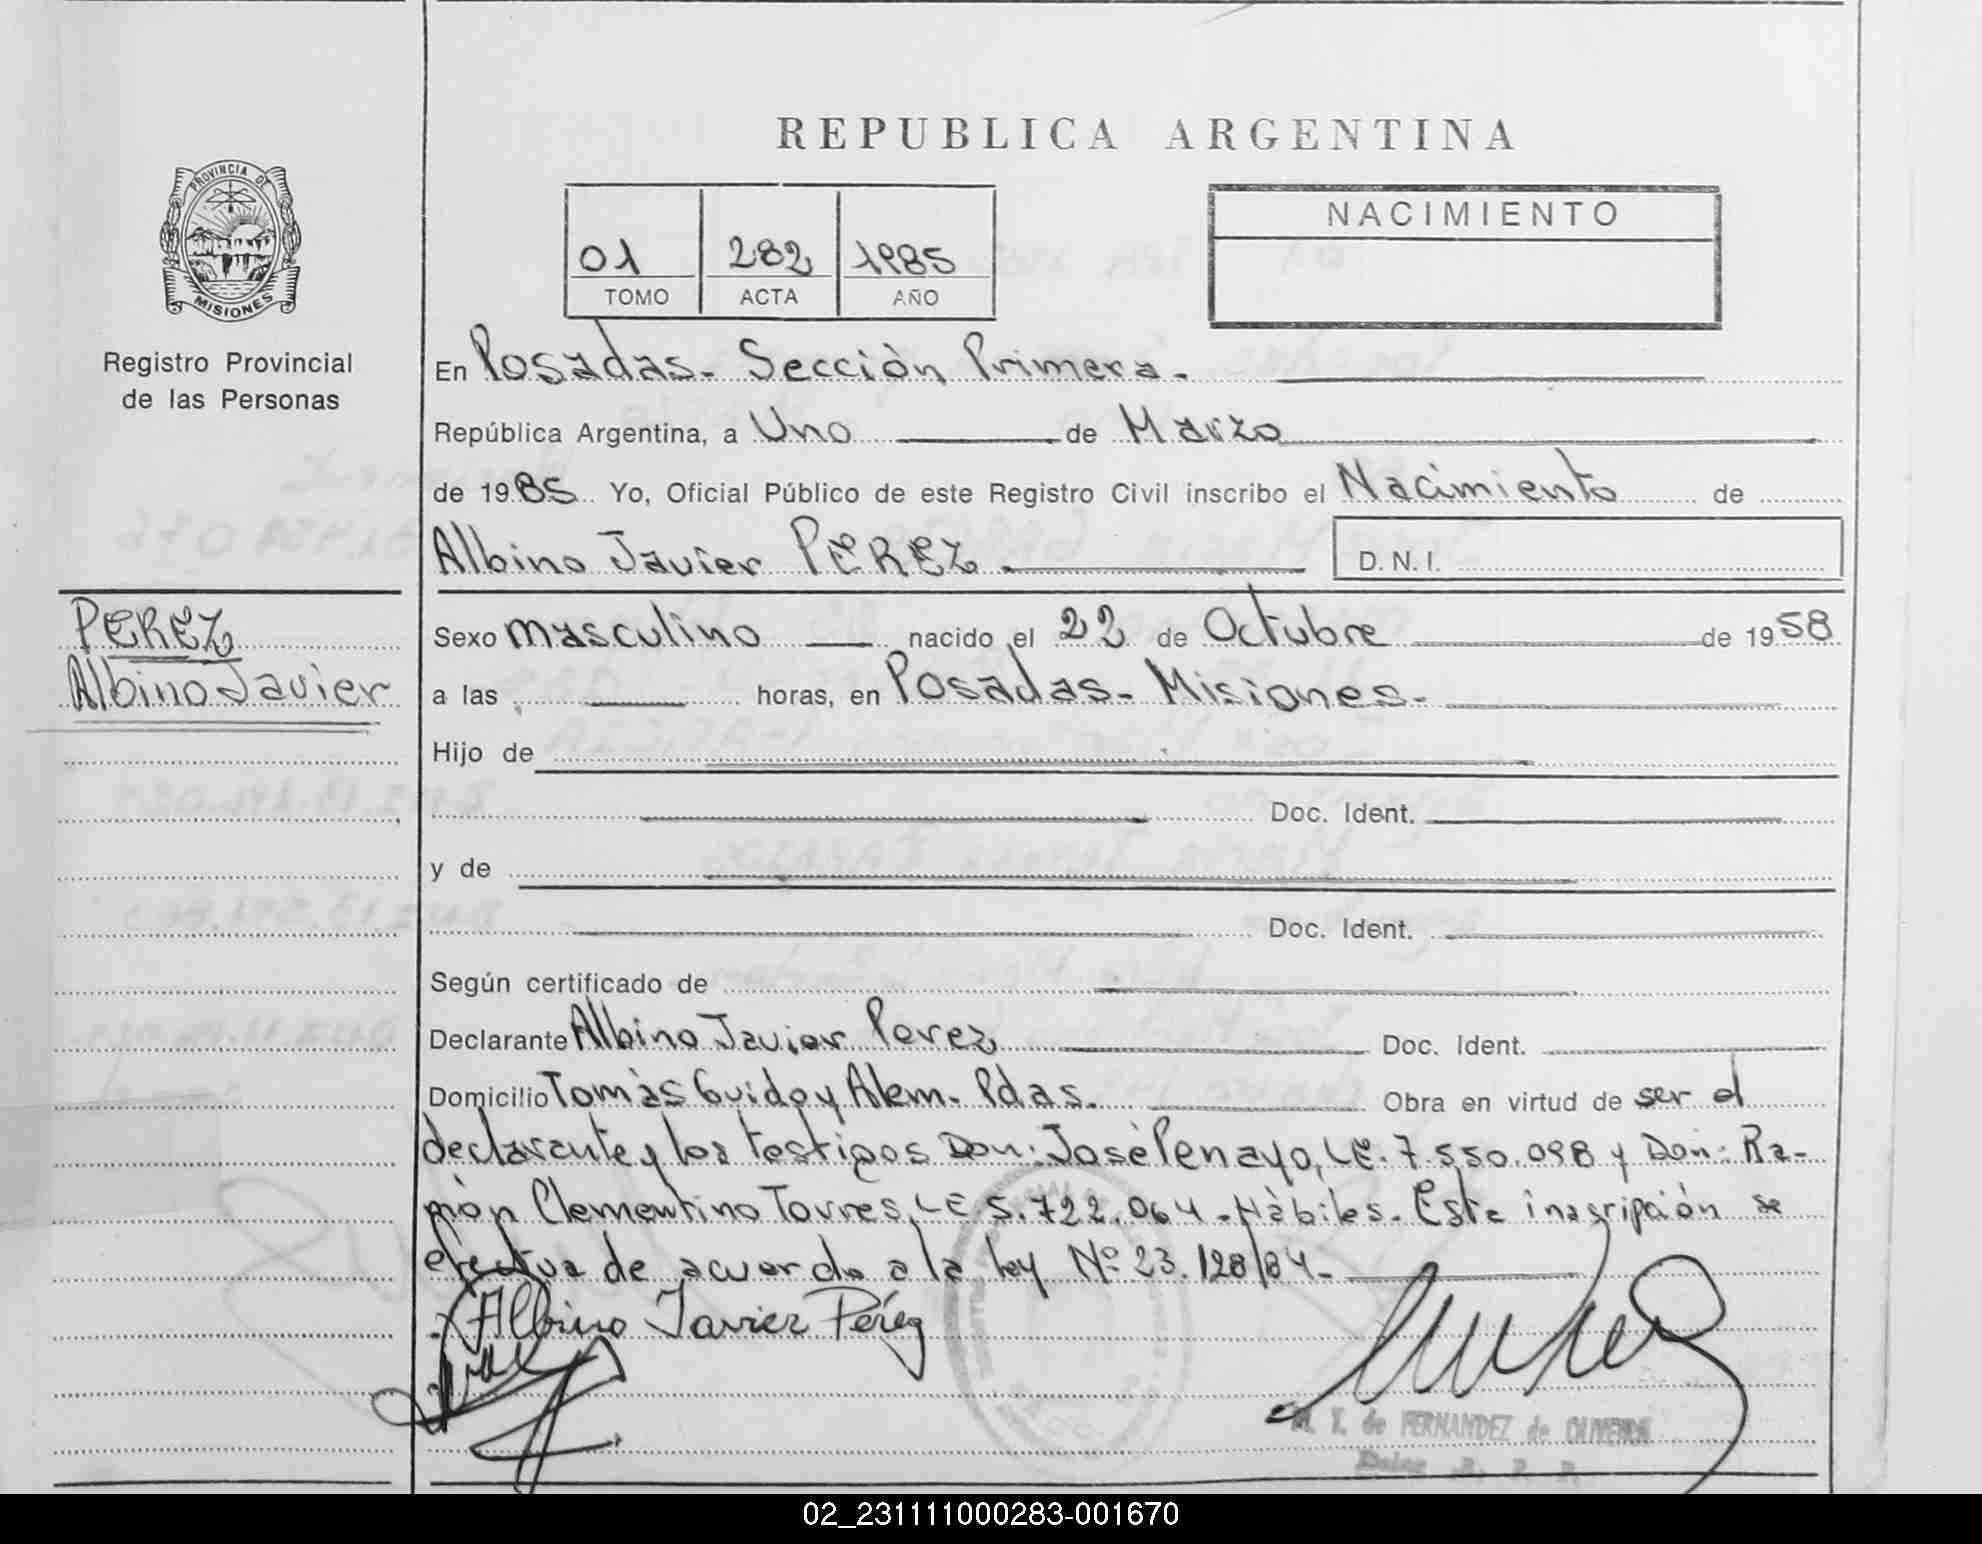 REPUBLICA ARGENTINA
PROVINCIA DE
MISIONES
Registro Provincial
de las Personas
01 282 1985
TOMO ACTA AÑO
NACIMIENTO
En Posadas - Sección Primera -
República Argentina, a Uno de Marzo
de 1985 Yo, Oficial Público de este Registro Civil inscribo el Nacimiento de
Albino Javier PEREZ D. N. I.
PEREZ
Albino Javier
Sexo masculino nacido el 22 de Octubre de 1958
a las horas, en Posadas - Misiones -
Hijo de
Doc. Ident.
y de
Doc. Ident.
Según certificado de
Declarante Albino Javier Perez Doc. Ident.
Domicilio Tomàs Guido y Alem - Pdas. Obra en virtud de ser el
declarante y los testigos Don: José Penayo, LE. 7.550.098 y Don: Ra-
mòn Clementino Torres, LE 5.722.064 - Hàbiles - Esta inscripción se
efectua de acuerdo a la ley Nº 23.128/84 -
Albino Javier Pérez
M. Y. de FERNANDEZ de
02_231111000283-001670